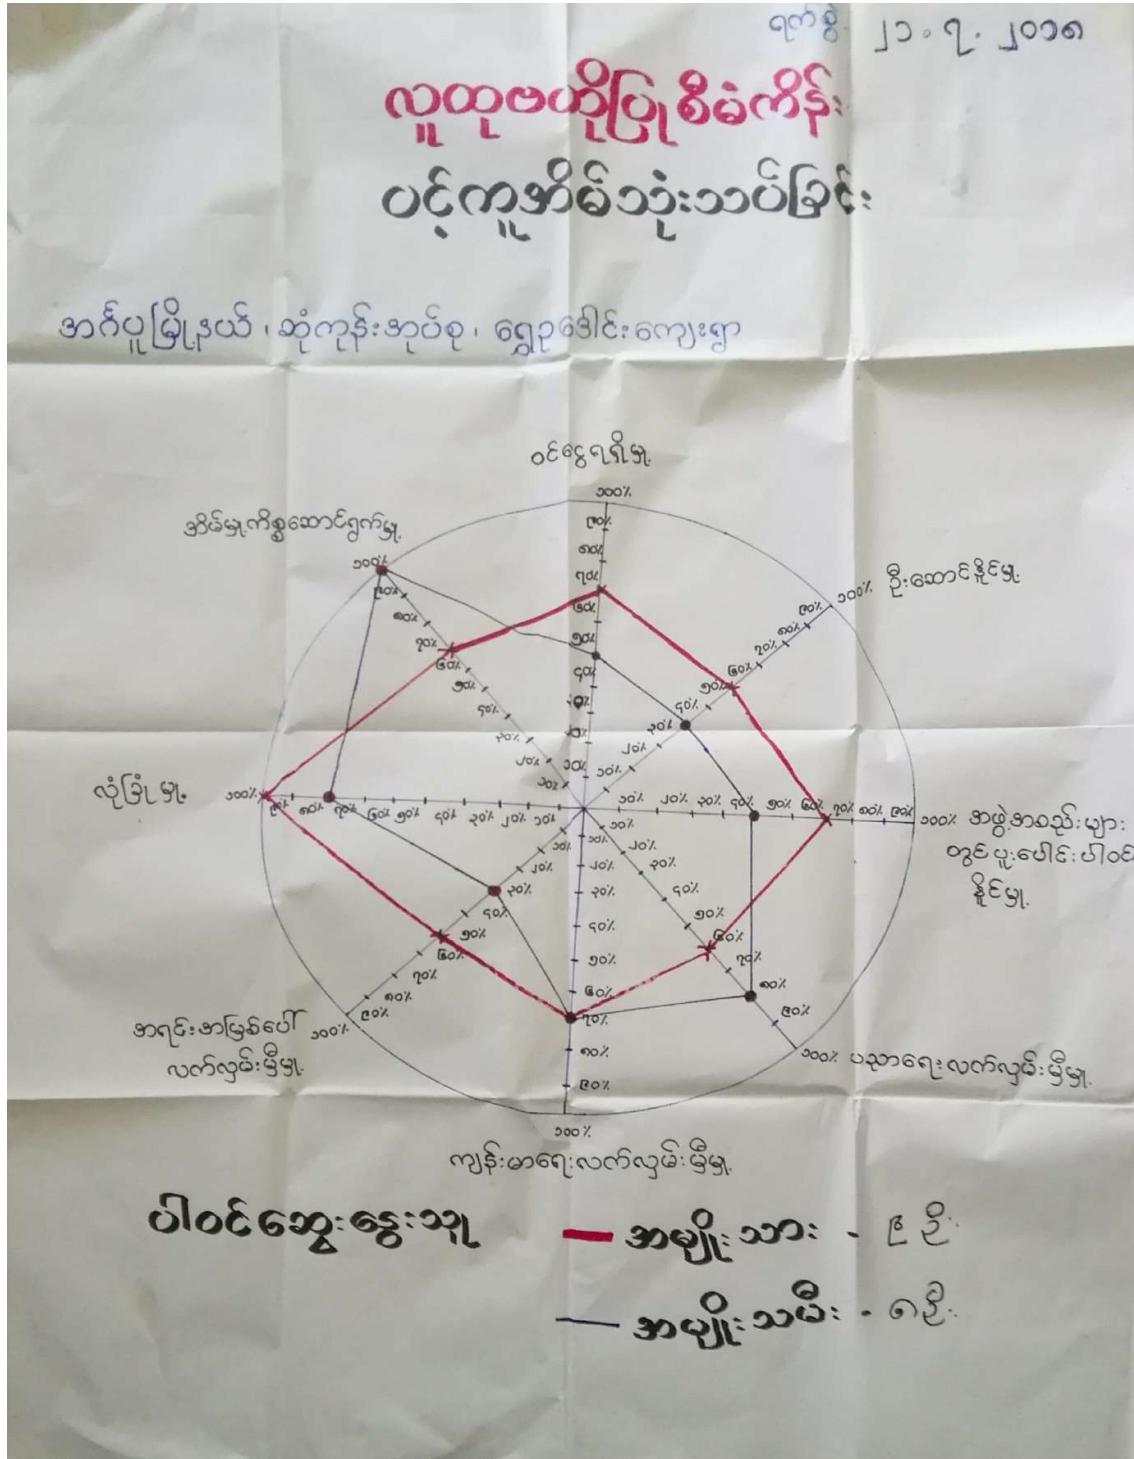 ရက်စွဲ ၂၁.၇.၂၀၁၈
လူထုဗဟိုပြုစီမံကိန်း
ပင့်ကူအိမ်သုံးသပ်ခြင်း
အင်္ဂပူမြို့နယ်၊ ဆုံကုန်းအုပ်စု၊ ရွှေဥဒေါင်းကျေးရွာ
ဝင်ငွေရရှိမှု
၁၀၀% ၉၀% ၈၀% ၇၀% ၆၀% ၅၀% ၄၀% ၃၀% ၂၀% ၁၀%
ဦးဆောင်နိူင်မှု
၁၀၀% ၉၀% ၈၀% ၇၀% ၆၀% ၅၀% ၄၀% ၃၀% ၂၀% ၁၀%
အဖွဲ့အစည်းများ
တွင်ပူးပေါင်းပါဝင်
နိူင်မှု
၁၀% ၂၀% ၃၀% ၄၀% ၅၀% ၆၀% ၇၀% ၈၀% ၉၀% ၁၀၀%
ပညာရေးလက်လှမ်းမှီမှု
၁၀% ၂၀% ၃၀% ၄၀% ၅၀% ၆၀% ၇၀% ၈၀% ၉၀% ၁၀၀%
ကျန်းမာရေးလက်လှမ်းမှီမှု
၁၀% ၂၀% ၃၀% ၄၀% ၅၀% ၆၀% ၇၀% ၈၀% ၉၀% ၁၀၀%
အရင်းအမြစ်ပေါ်
လက်လှမ်းမှီမှု
၁၀% ၂၀% ၃၀% ၄၀% ၅၀% ၆၀% ၇၀% ၈၀% ၉၀% ၁၀၀%
လုံခြုံမှု
၁၀၀% ၉၀% ၈၀% ၇၀% ၆၀% ၅၀% ၄၀% ၃၀% ၂၀% ၁၀%
အိမ်မှုကိစ္စဆောင်ရွက်မှု
၁၀၀% ၉၀% ၈၀% ၇၀% ၆၀% ၅၀% ၄၀% ၃၀% ၂၀% ၁၀%
ပါဝင်ဆွေးနွေးသူ
အမျိုးသား - ၉ ဦး
အမျိုးသမီး - ၈ဦး